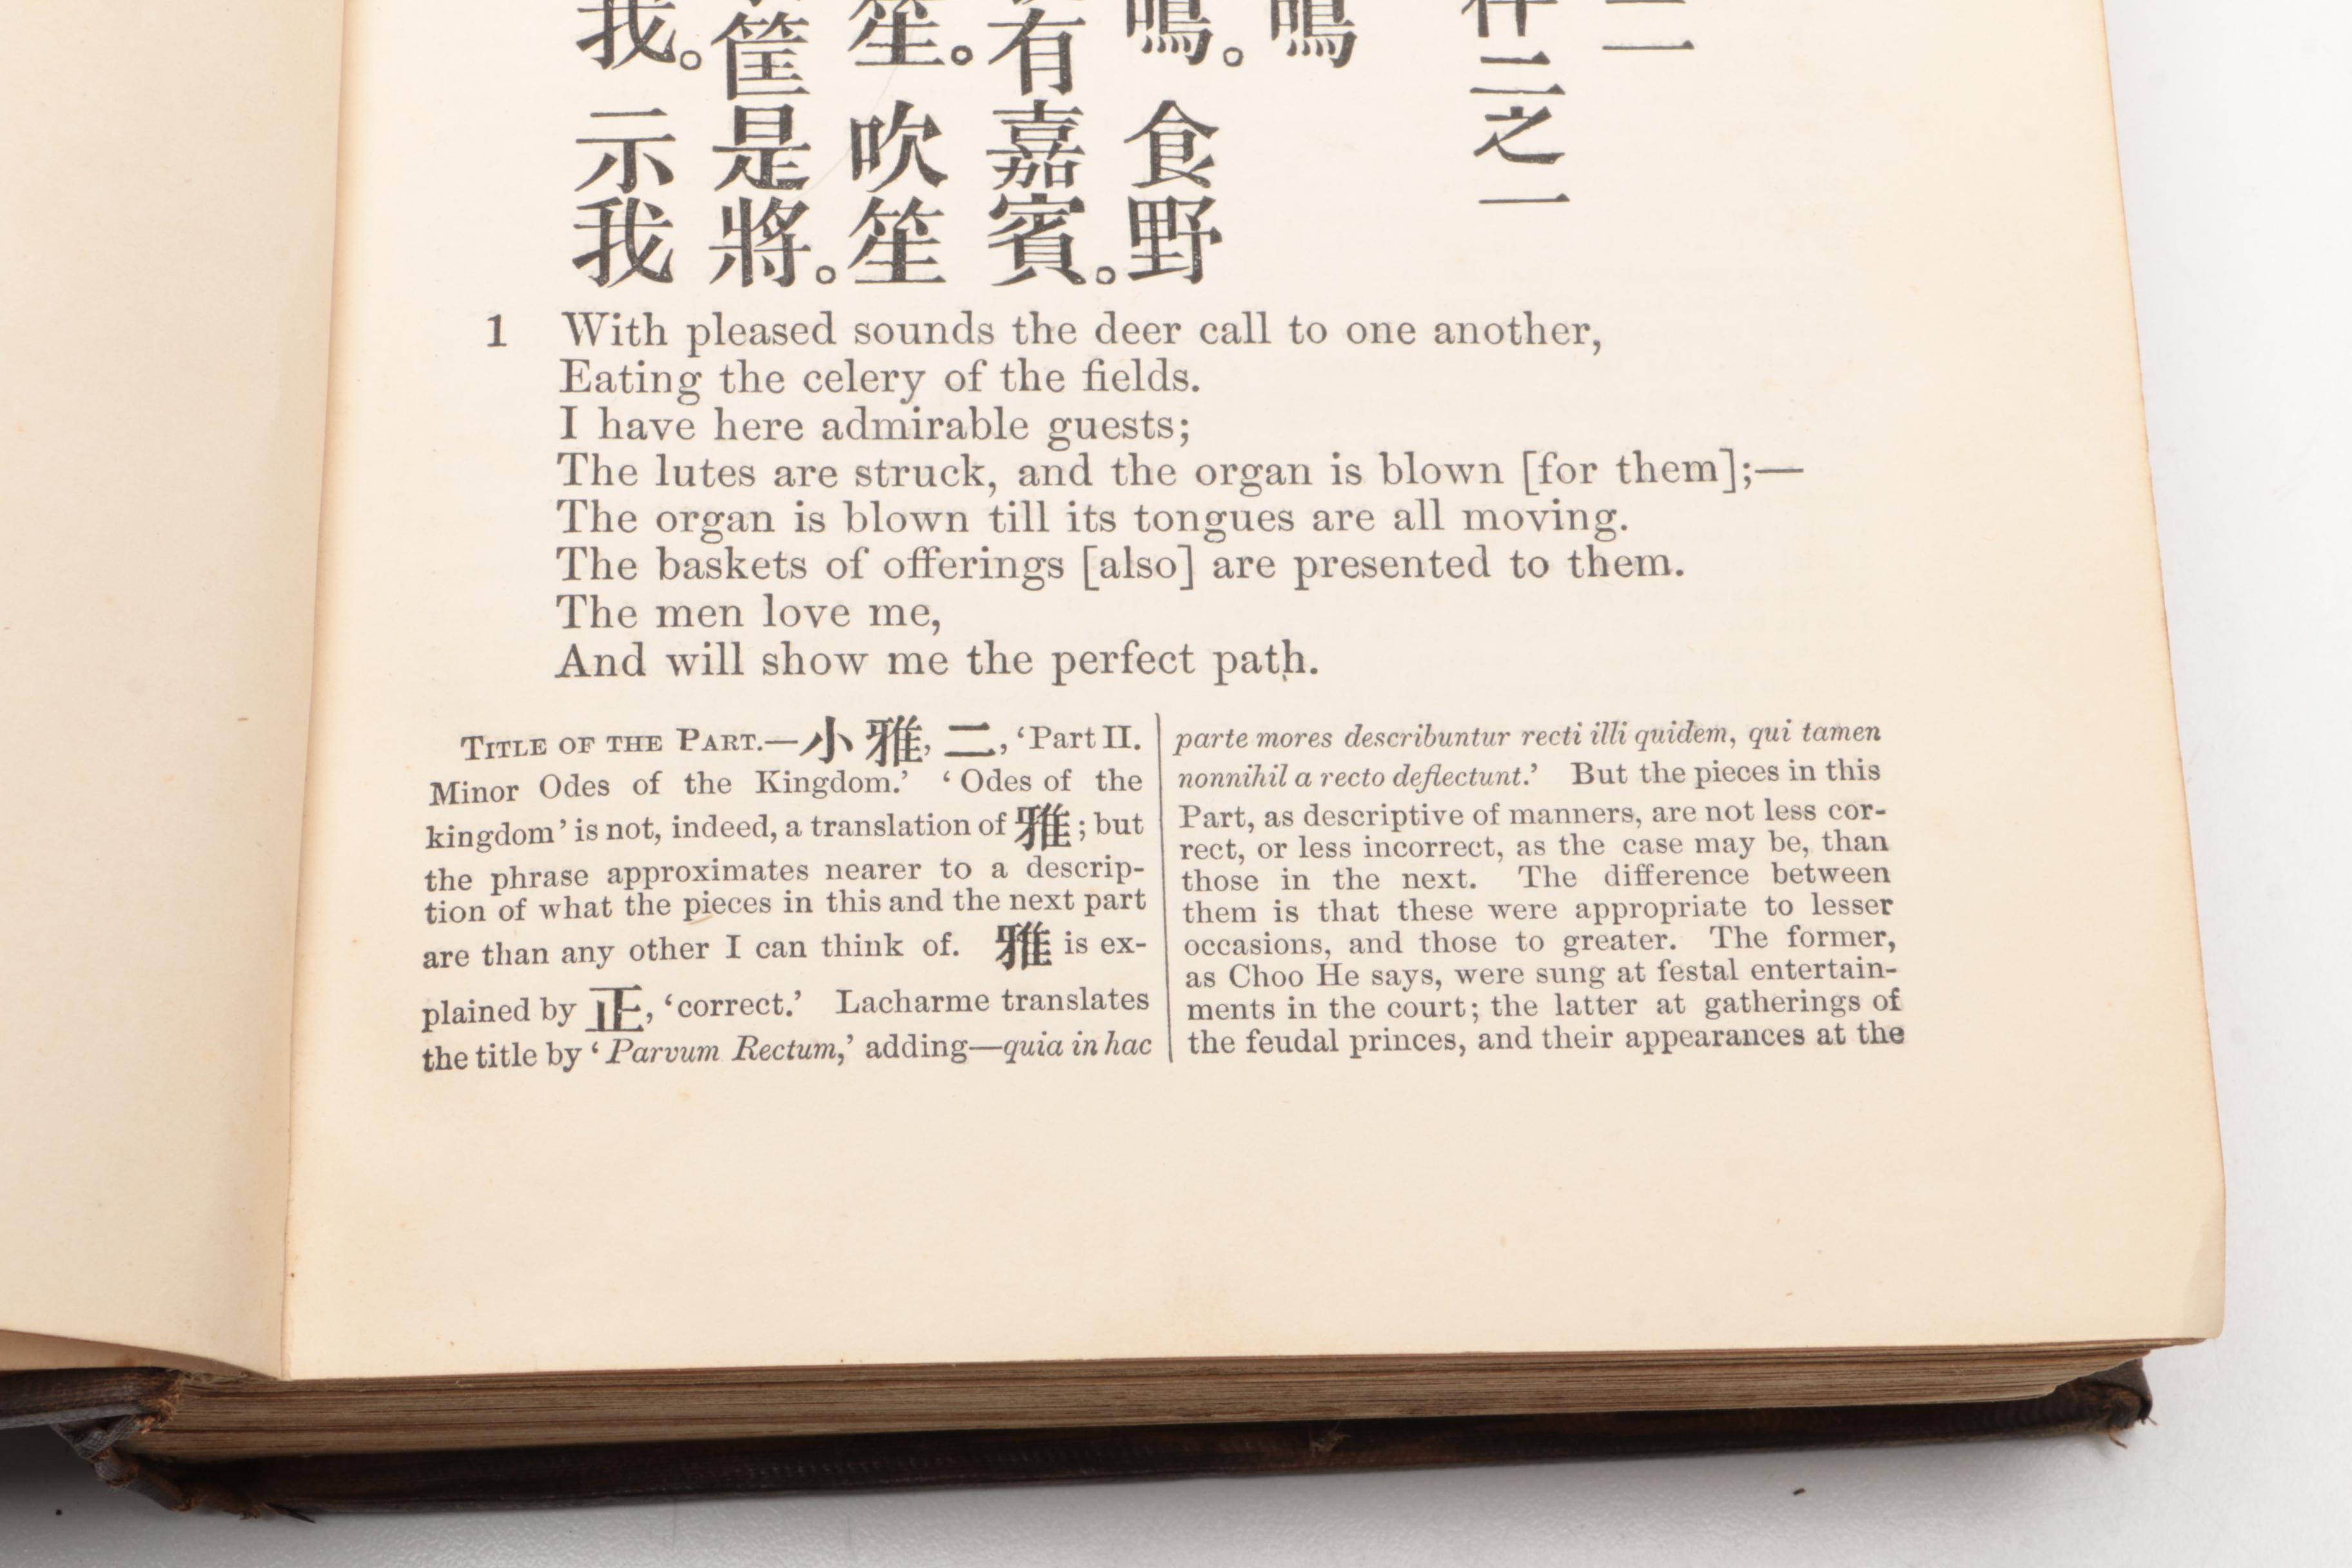 二
什二之一
鳴
鳴。食野
有嘉賓。
笙。吹笙
筐是將。
我。示我
1 With pleased sounds the deer call to one another,
Eating the celery of the fields.
I have here admirable guests;
The lutes are struck, and the organ is blown [for them];—
The organ is blown till its tongues are all moving.
The baskets of offerings [also] are presented to them.
The men love me,
And will show me the perfect path.
TITLE OF THE PART.—小雅, 二, ‘Part II.
Minor Odes of the Kingdom.’ ‘Odes of the
kingdom’ is not, indeed, a translation of 雅; but
the phrase approximates nearer to a descrip-
tion of what the pieces in this and the next part
are than any other I can think of. 雅 is ex-
plained by 正, ‘correct.’ Lacharme translates
the title by ‘Parvum Rectum,’ adding—quia in hac
parte mores describuntur recti illi quidem, qui tamen
nonnihil a recto deflectunt.’ But the pieces in this
Part, as descriptive of manners, are not less cor-
rect, or less incorrect, as the case may be, than
those in the next. The difference between
them is that these were appropriate to lesser
occasions, and those to greater. The former,
as Choo He says, were sung at festal entertain-
ments in the court; the latter at gatherings of
the feudal princes, and their appearances at the